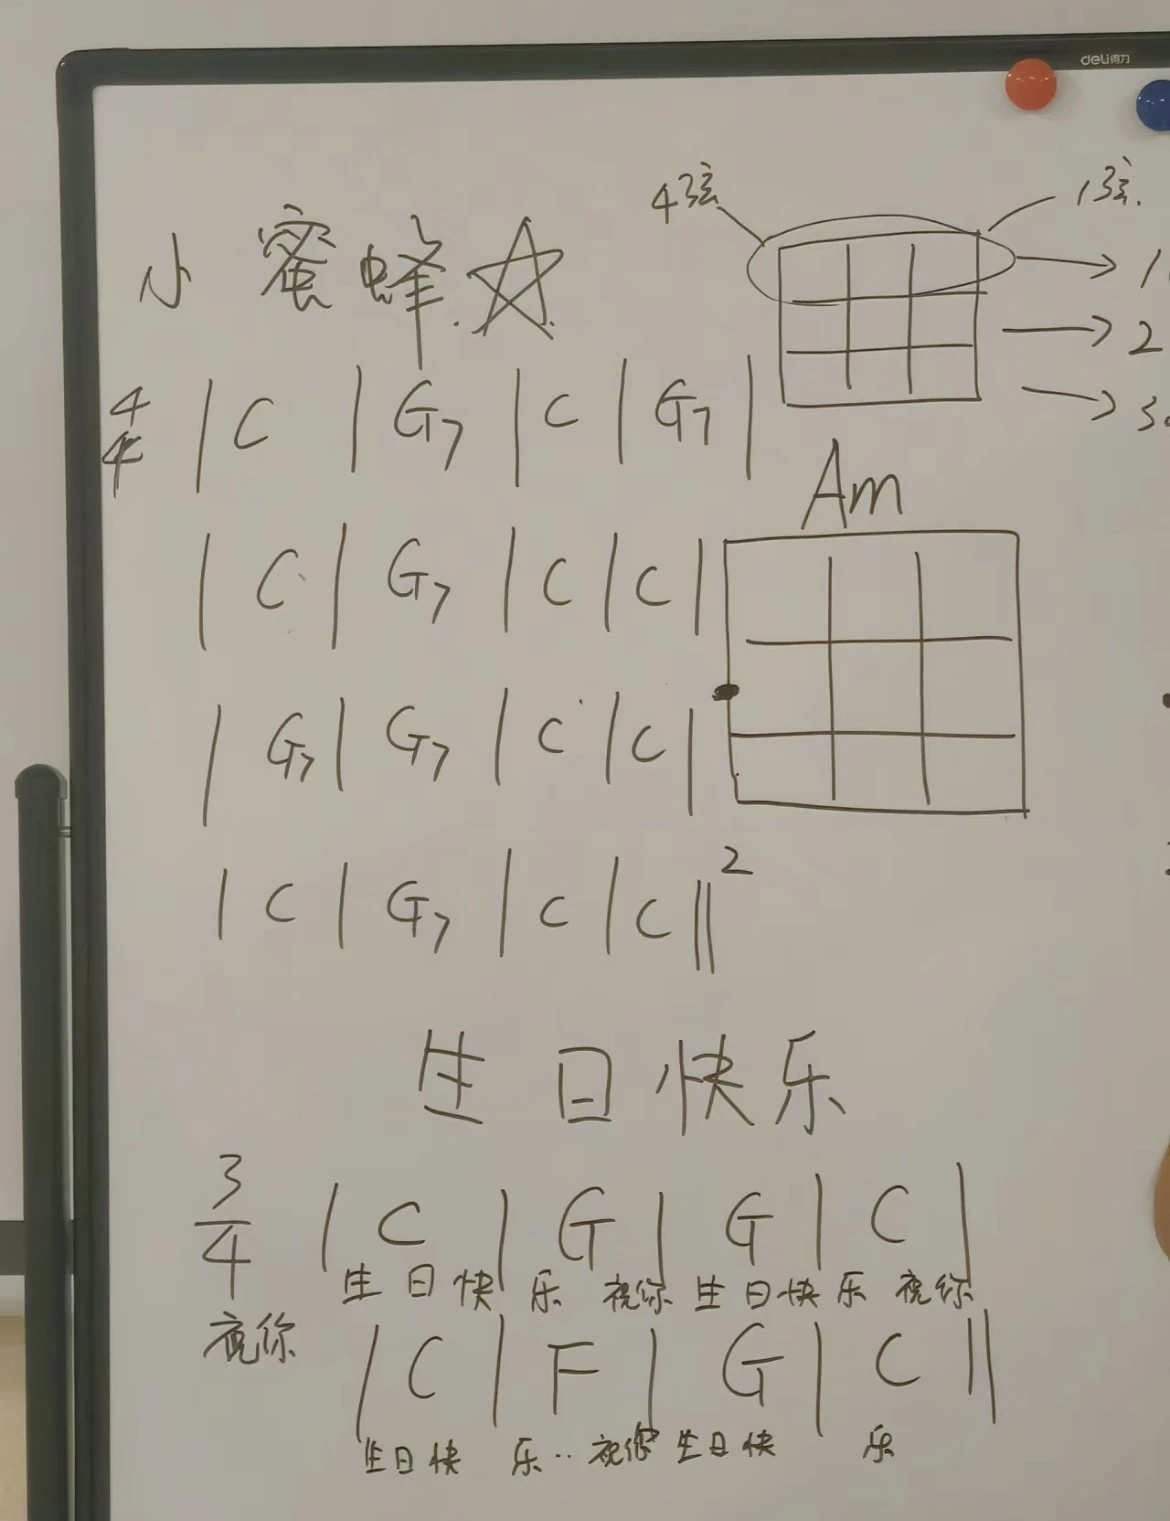 deli得力
4弦 1弦.
小蜜蜂.☆
1
2
3
4/4 | C | G7 | C | G7 |
Am
| C | G7 | C | C |
| G7 | G7 | C | C |
| C | G7 | C | C ‖ 2
生日快乐
3/4 | C | G | G | C |
祝你 生日快乐 祝你 生日快乐 祝你
| C | F | G | C ‖
生日快 乐·· 祝你 生日快 乐